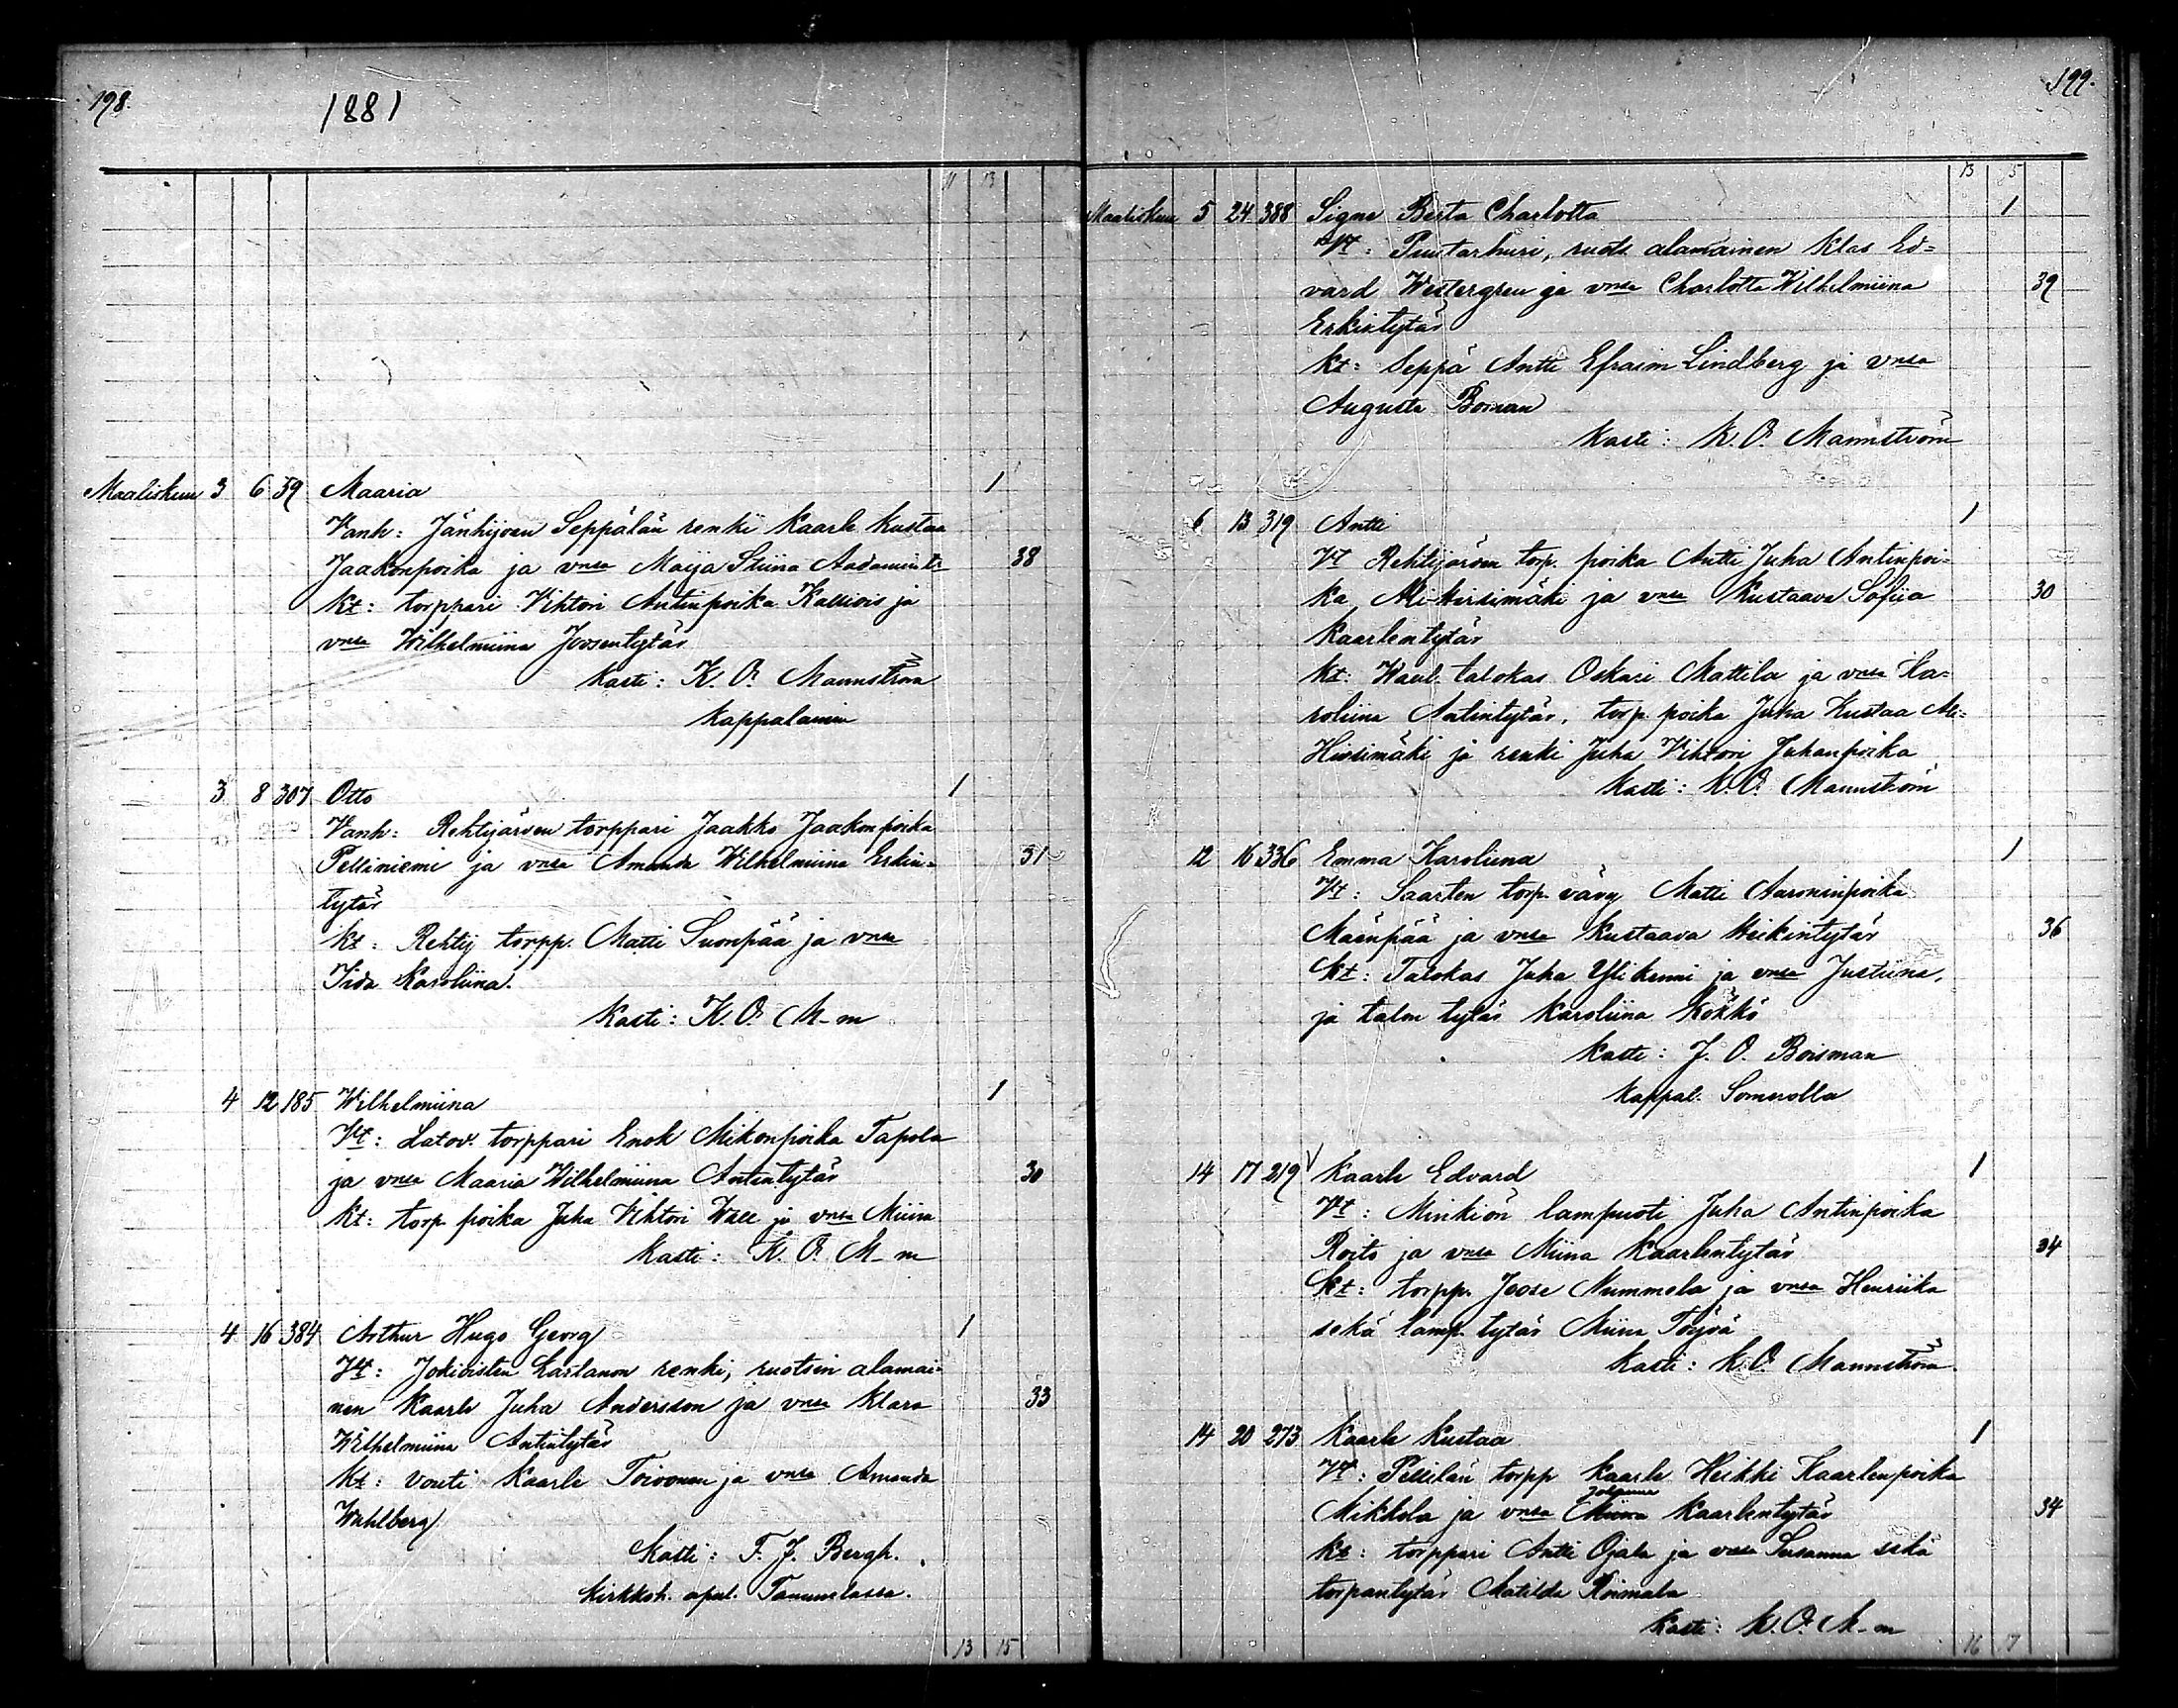 198.
1881
11 13
Maaliskuu 3 6 59 Maaria 1
Vanh: Jänhijoen Seppälän renki Kaarle Kustaa
Jaakonpoika ja vnsa Maija Stiina Aadamint. 38
kt: torppari Vihtori Antinpoika Kallioin ja
vnsa Wilhelmiina Joosentytär
Kasti: K. O. Mannström
kappalainen
3 8 307 Otto 1
Vanh: Rehtijärven torppari Jaakko Jaakonpoika
Pelliniemi ja vnsa Amanda Wilhelmiina Erkin- 31
tytär
kt: Rehtij torpp. Matti Suonpää ja vnsa
Iida Karoliina.
Kasti: K. O. M-m
4 12 185 Wilhelmiina 1
Vt: Latov. torppari Enok Mikonpoika Tapola
ja vnsa Maaria Wilhelmiina Antintytär 30
kt: torp. poika Juha Vihtori Wall ja vnsa Miina
Kasti: K. O. M-m
4 16 384 Arthur Hugo Georg 1
Vt: Jokioisten kartanon renki, ruotsin alamai-
nen Kaarle Juha Andersson ja vnsa Klara 33
Wilhelmiina Antintytär
kt: vouti Kaarle Toivonen ja vnsa Amanda
Wahlberg
Kasti: F. J. Bergh.
Kirkkoh. apul. Tammelassa.
13 15
199.
13 5
Maaliskuu 5 24 388 Signe Berta Charlotta 1
Vt: Puutarhuri, ruots. alamainen Klas Ed-
vard Westergren ja vnsa Charlotta Wilhelmiina 39
Erkintytär
kt: Seppä Antti Efraim Lindberg ja vnsa
Augusta Boman
Kasti: K. O. Mannström
6 13 319 Antti 1
Vt Rehtijärven torp. poika Antti Juha Antinpoi-
ka Ali-Hirsimäki ja vnsa Kustaava Sofiia 30
Kaarlentytär
kt: Waul. talokas Oskari Mattila ja vnsa Ka-
roliina Antintytär, torp. poika Juha Kustaa Ali-
Hirsimäki ja renki Juha Vihtori Juhanpoika
Kasti: K. O. Mannström
12 16 336 Emma Karoliina 1
Vt: Saarten torp. vävy Matti Aaroninpoika
Mäenpää ja vnsa Kustaava Heikintytär 36
kt: Talokas Juha Ylikenni ja vnsa Justiina,
ja talon tytär Karoliina Kökkö
Kasti: J. O. Boisman
Kappal. Somerolla
14 17 219 V Kaarle Edvard 1
Vt: Minkiön lampuoti Juha Antinpoika
Roito ja vnsa Miina Kaarlentytär 34
kt: torpp. Joose Nummela ja vnsa Henriika
sekä lamp. tytär Miina Töyrä
Kasti: K. O. Mannström
14 20 273 Kaarle Kustaa 1
Vt: Pellilän torpp Kaarle Heikki Kaarlenpoika
Johanna
Mikkola ja vnsa Miina Kaarlentytär 34
kt: torppari Antti Ojala ja vnsa Susanna sekä
torpantytär Matilda Roimala
Kasti: K. O. M-m
16 17